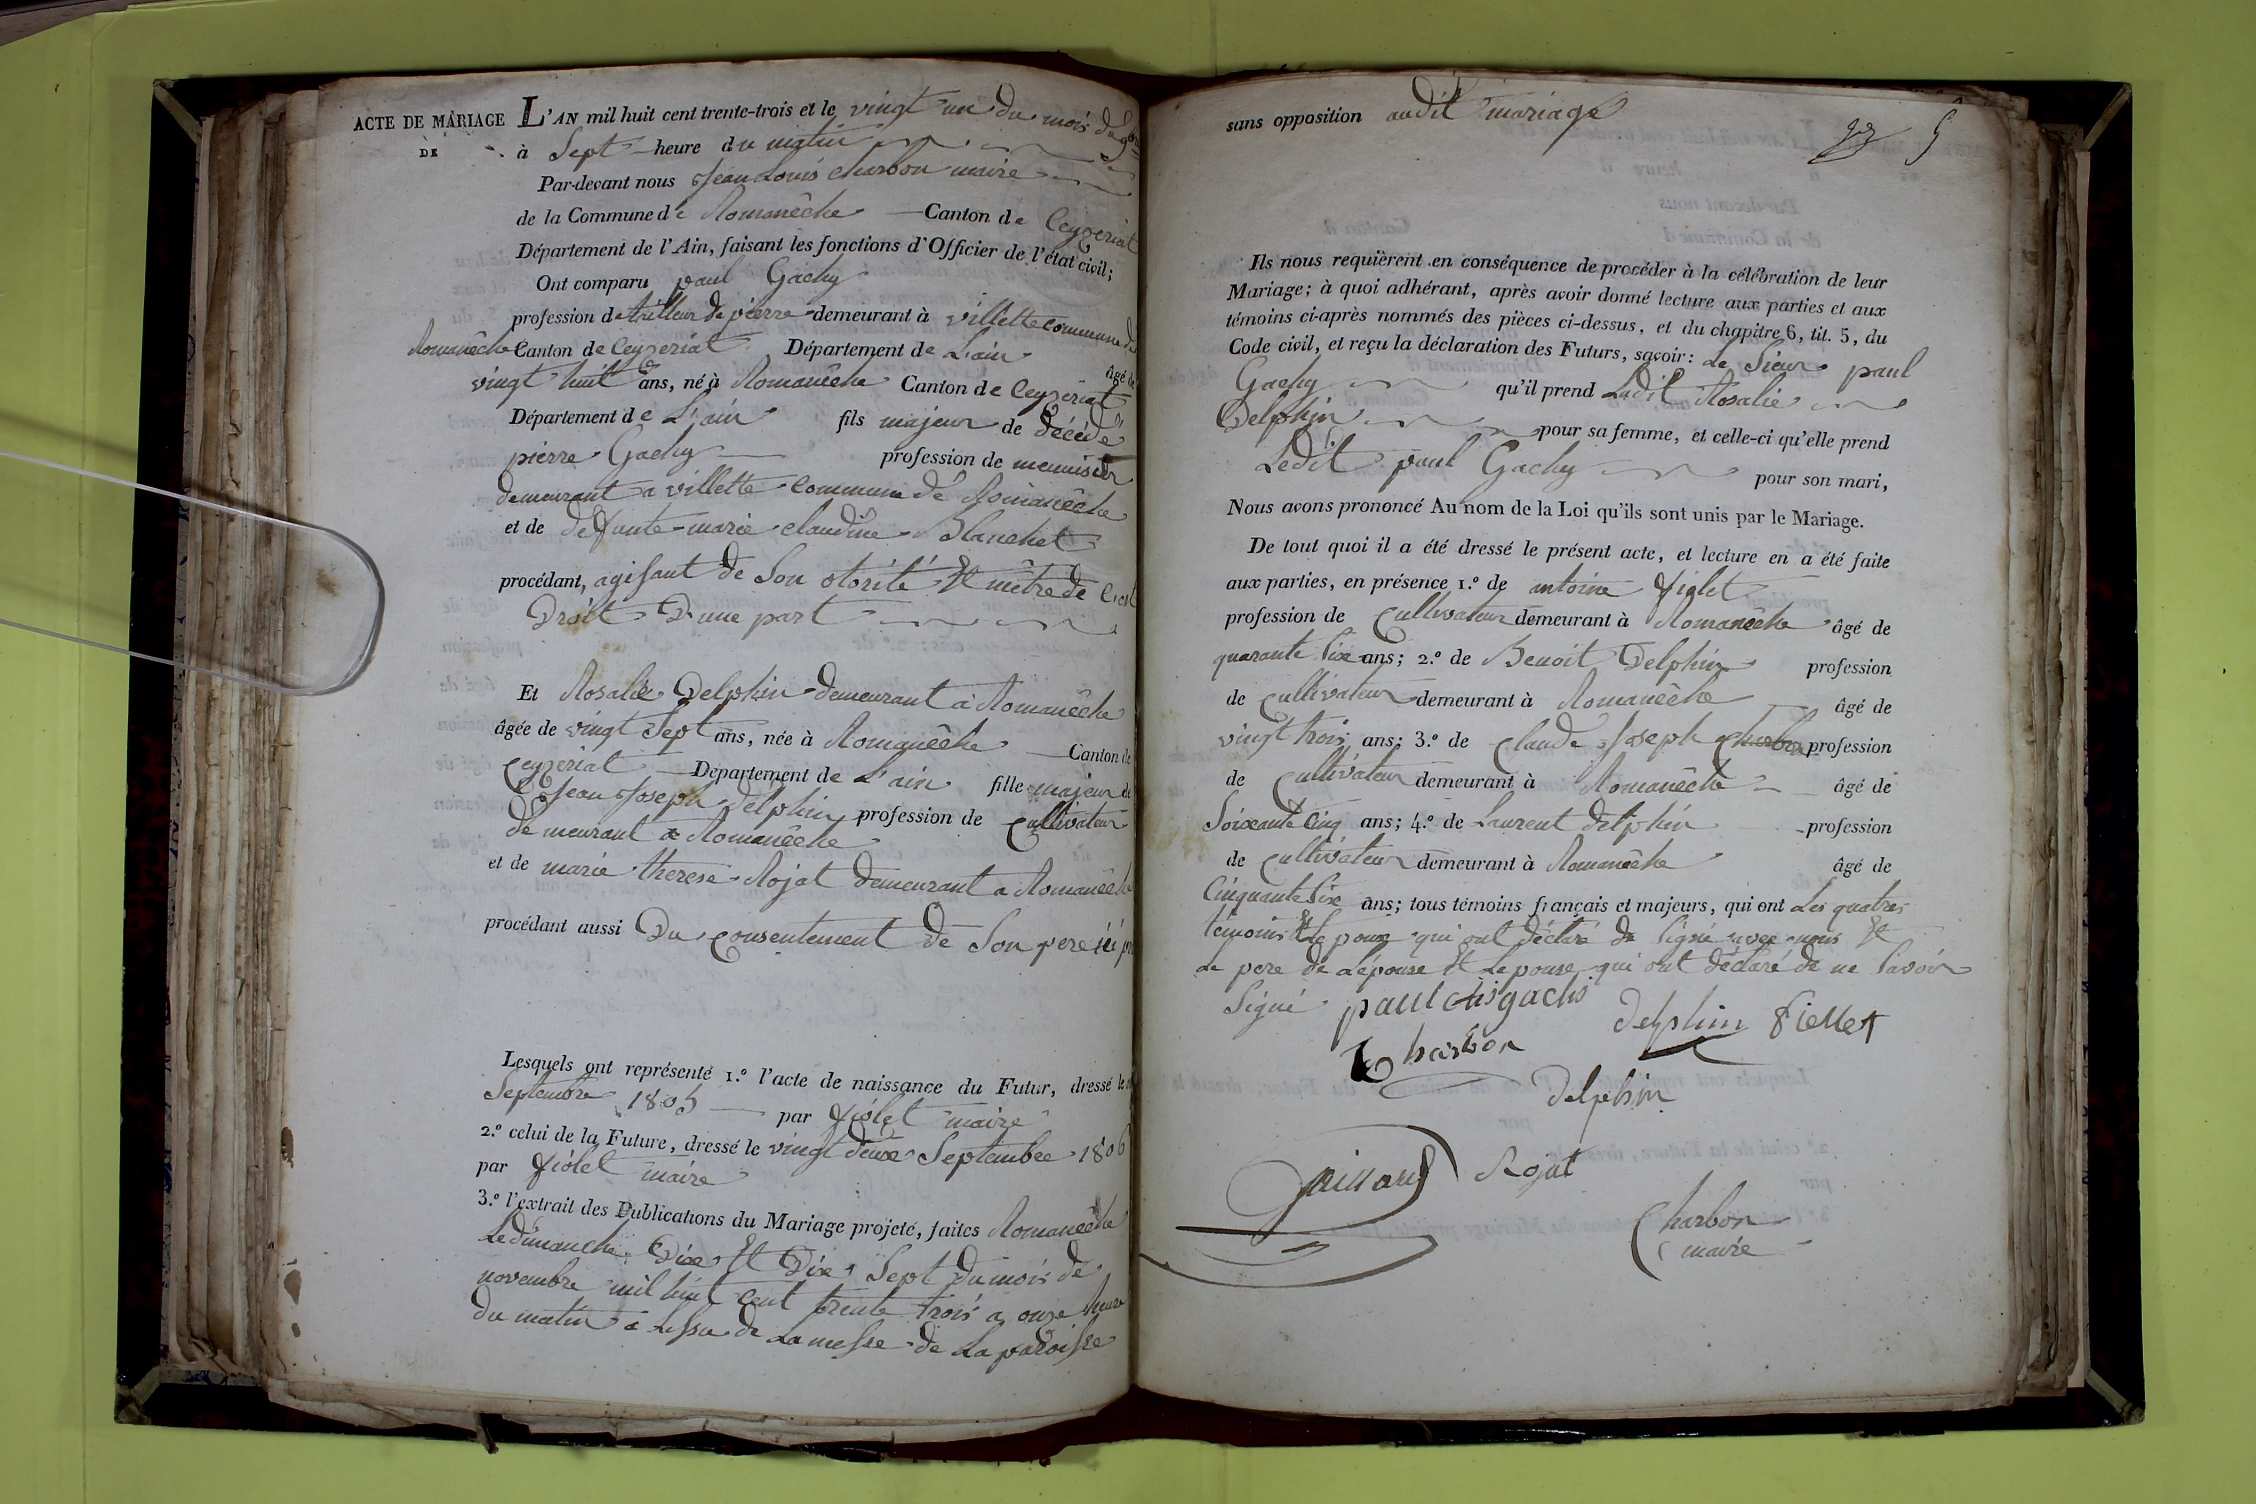 ACTE DE MARIAGE L'AN mil huit cent trente-trois et le vingt un du mois de 9bre
DE à Sept heure du matin
Par-devant nous Jean Louis charbon maire
de la Commune de Romanêche Canton de Ceyzeriat
Département de l'Ain, faisant les fonctions d'Officier de l'état civil;
Ont comparu paul Gachy
profession de tailleur de pierre demeurant à villette commune de
Romanêche Canton de Ceyzeriat Département de L'ain âgé de
vingt huit ans, né à Romanêche Canton de Ceyzériat
Département de L'ain fils majeur de décédé
pierre Gachy profession de menuisier
demeurant a villette commune de Romanêche
et de defunte marie claudine Blanchet
procédant, agisant de Son otorité Et mêtre de Cest
Droit D'une part
Et Rosalie Delphin demeurant à Romanêche
âgée de vingt Sept ans, née à Romanêche Canton de
Ceyzeriat Département de L'ain fille majeur de
Jean Joseph Delphin profession de Cultivateur
demeurant a Romanêche
et de marie therese Rojat demeurant a Romanêche
procédant aussi Du Consentement de Son pere ici
Lesquels ont représenté 1.º l'acte de naissance du Futur, dressé le
Septembre 1805 par fiolet maire
2.º celui de la Future, dressé le vingt deux Septembre 1806
par fiolet maire
3.º l'extrait des Publications du Mariage projeté, faites Romanêche
Le dimanche Dix Et Dix Sept du mois de
novembre mil huit Cent trente trois a onze heure
du matin a Lissu de La messe de La paroisse
sans opposition audit mariage
Ils nous requièrent en conséquence de procéder à la célébration de leur
Mariage; à quoi adhérant, après avoir donné lecture aux parties et aux
témoins ci-après nommés des pièces ci-dessus, et du chapitre 6, tit. 5, du
Code civil, et reçu la déclaration des Futurs, savoir: Le Sieur paul
Gachy qu'il prend Ladit Rosalie
Delphin pour sa femme, et celle-ci qu'elle prend
Ledit paul Gachy pour son mari,
Nous avons prononcé Au nom de la Loi qu'ils sont unis par le Mariage.
De tout quoi il a été dressé le présent acte, et lecture en a été faite
aux parties, en présence 1.º de antoine fiolet
profession de Cultivateur demeurant à Romanêche âgé de
quarante Six ans; 2.º de Benoit Delphin profession
de Cultivateur demeurant à Romanêche âgé de
vingt trois ans; 3.º de Claude Joseph Charbon profession
de Cultivateur demeurant à Romanêche âgé de
Soixante Cinq ans; 4.º de Laurent delphin profession
de Cultivateur demeurant à Romanêche âgé de
Cinquante Six ans; tous témoins français et majeurs, qui ont Les quatres
temoins Et Le poux qui ont déclaré de Signé avec nous Et
Le pere de L'épouse Et Lepouse qui ont déclaré de ne Savoir
Signé paul gachi
Delphin fiellet
Charbon
Delphin
Gaillard Rojat
Charbon
maire